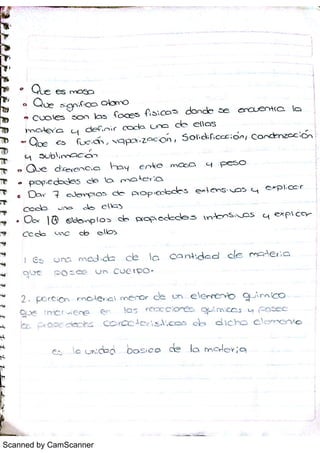 • Que es masa
• Que significa atomo
• cuales son las faces fisicas donde se encuentra la
materia y definir cada una de ellas
- Que es fusión, vaporización, Solidificación, Condenzación
y sublimación
• Que diferencia hay entre masa y peso
• propiedades de la materia
• Dar 7 ejemplos de propiedades extensivas y explicar
cada una de ellas
• Dar 10 ejemplos de propiedades intensivas y explicar
cada una de ellas
1 Es una medida de la cantidad de materia
que posee un cuerpo.
2. porcion material menor de un elemento quimico
que interviene en las reacciones quimicas y posee
las propiedades caracteristicas de dicho elemento
es la unidad basica de la materia
Scanned by CamScanner